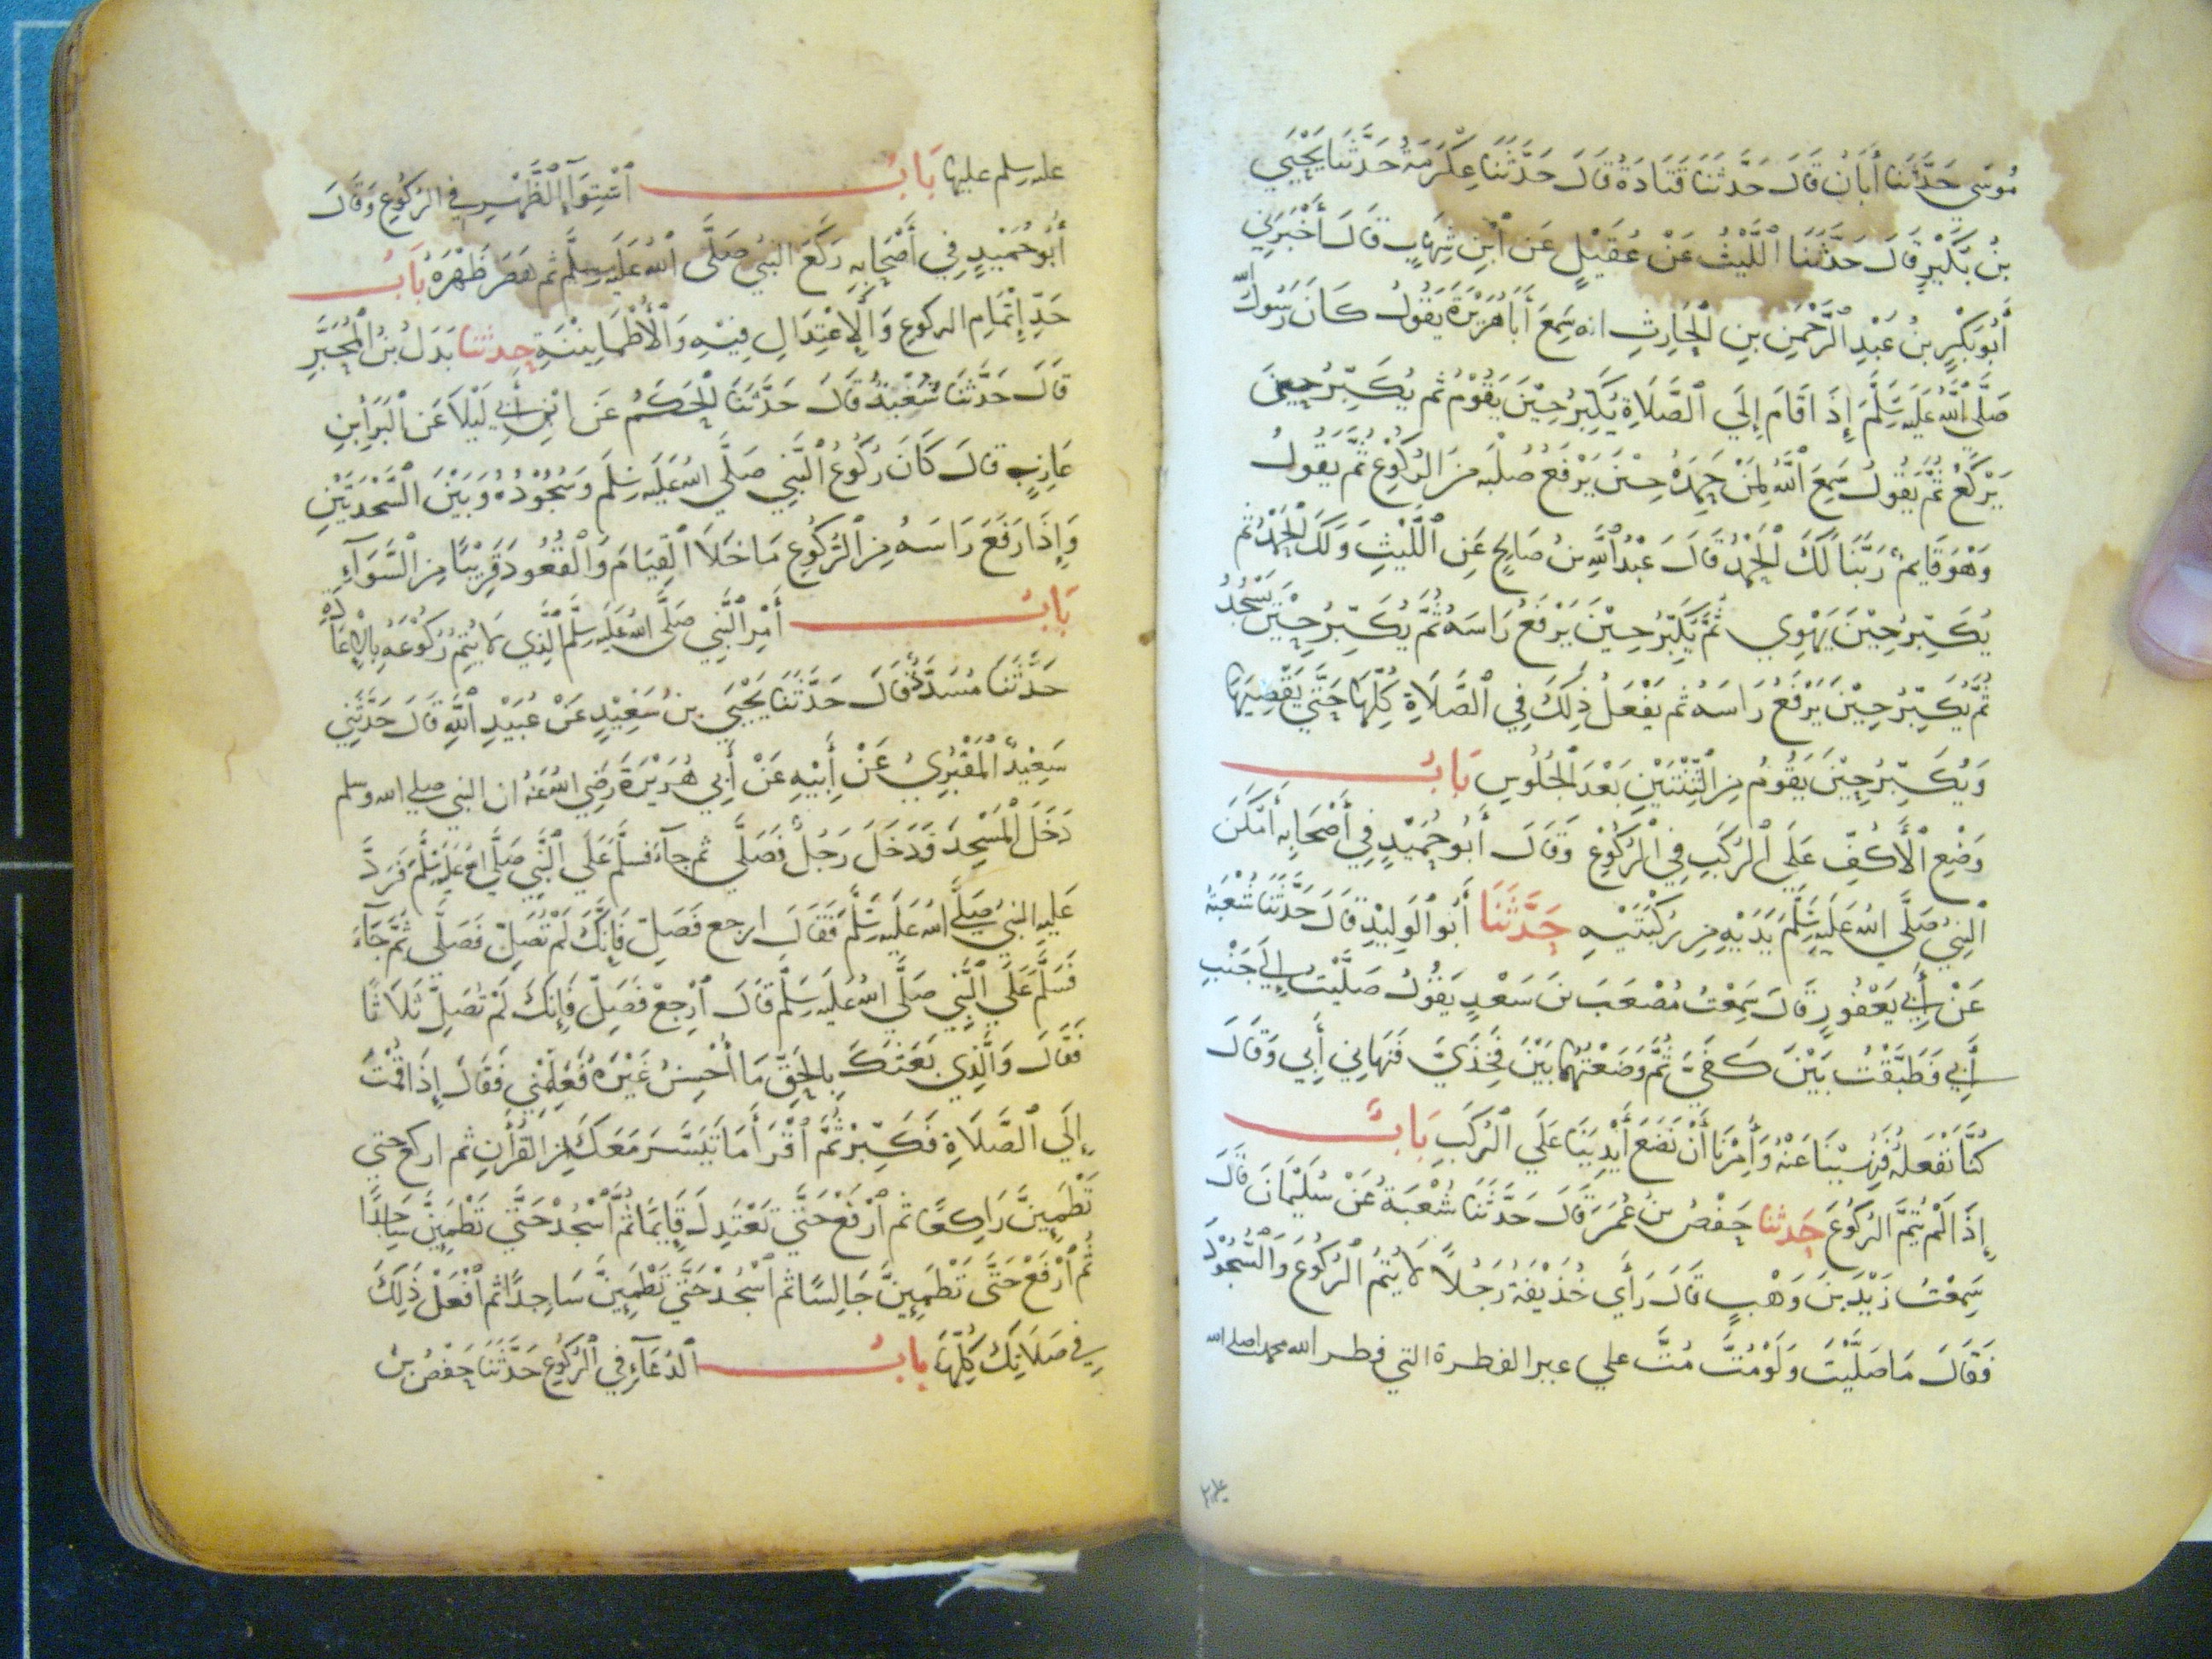 مُوسَى حَدَّثَنَا أَبَانُ قَالَ حَدَّثَنَا قَتَادَةُ قَالَ حَدَّثَنَا عِكْرِمَةُ حَدَّثَنَا يَحْيَي
بْنُ بُكَيْرٍ قَالَ حَدَّثَنَا اللَّيْثُ عَنْ عُقَيْلٍ عَنِ ابْنِ شِهَابٍ قَالَ أَخْبَرَنِي
أَبُو بَكْرِ بْنُ عَبْدِ الرَّحْمَنِ بنِ الْحَارِثِ انه سَمِعَ أَبَا هُرَيْرَةَ يَقُولُ كَانَ رَسُولُ اللَّه
صَلَّى اللَّهُ عَلَيْهِ وَسَلَّمَ إِذَا قَامَ إِلَي الصَّلَاةِ يُكَبِّرُ حِيْنَ يَقُوْمُ ثم يُكَبِّرُ حِينَ
يَرْكَعُ ثُمَّ يَقُولُ سَمِعَ اللَّهُ لِمَنْ حَمِدَهُ حِيْنَ يَرْفَعُ صُلْبَه مِنَ الرُكُوْعِ ثُمَّ يَقُولُ
وَهْوَ قَايِمٌ رَبَّنَا لَكَ الْحَمْدُ قَالَ عَبْدُ اللَّهِ بنُ صَالِحٍ عَنِ اللَّيْثِ وَلَكَ الْحَمْدُ ثم
يُكَبِّرُ حِيْنَ يَهْوِي ثُمَّ يُكَبِّرُ حِيْنَ يَرْفَعُ رَاسَهُ ثُمَّ يُكَبِّرُ حِيْنَ يَسْجُدُ
ثُمَّ يُكَبِّرُ حِيْنَ يَرْفَعُ رَاسَهُ ثم يَفْعَلُ ذلِكَ فِي الصَّلَاةِ كُلِّهَا حَتَّي يَقْضِيَهَا
وَيُكَبِّرُ حِيْنَ يَقُومُ مِنَ الثِّنْتَيْنِ بَعْدَ الْجُلُوسِ بَابُ
وَضْعِ الْأَكُفِّ عَلَي الرُكَبِ فِي الرُكُوْعِ وَقَالَ أَبُو حُمَيْدٍ فِي أَصْحَابِه أَمْكَنَ
النبيُ صَلَّى اللهُ عَلَيْهِ وَسَلَّمَ يَدَيْهِ مِن رُكْبَتَيْهِ حَدَّثَنَا أَبُو الوَلِيْدِ قَالَ حَدَّثَنَا شُعْبَةُ
عَنْ أَبِي يَعْفُورٍ قَالَ سَمِعْتُ مُصْعَبَ بنَ سَعْدٍ يَقُولُ صَلَّيْتُ إِلَي جَنْبِ
أَبِي فَطَبَّقْتُ بَيْنَ كَفَيَّ ثُمَّ وَضَعْتُهُمَا بَيْنَ فَخِذَيَّ فَنَهَانِي أَبِي وَقَالَ
كُنَّا نَفْعَلُهُ فَنُهِيْنَا عَنْهُ وَأُمِرْنَا أَنْ نَضَعَ أَيْدِيَنَا عَلَي الرُكَبِ بَابٌ
إِذَا لَمْ يُتِمَّ الرُكُوعَ حَدثنا حَفْصُ بنُ عُمَرَ قَالَ حَدَّثَنَا شُعْبَةُ عَنْ سُلَيْمَانَ قَالَ
سَمِعْتُ زَيْدَ بنَ وَهْبٍ قَالَ رَأَي حُذَيْفَةُ رَجُلاً لَا يُتِمُ الرُكُوعَ وَالسُّجُوْدَ
فَقَالَ مَا صَلَّيْتَ وَلَوْ مُتَّ مُتَّ علي غير الفطرة التي فطر الله محمدا صلي الله
عليه وسلم عليها بَابُ اسْتِوَآءِ الظَّهْرِ فِي الرُكُوْعِ وَقَالَ
أَبُو حُمَيْدٍ فِي أَصْحَابِهِ رَكَعَ النَبيُ صَلَّى اللهُ عَلَيْهِ وَسَلَّمَ ثم هَصَرَ ظَهْرَهُ بَابُ
حَدِّ إِتْمَامِ الركوعِ وَالْإِعْتِدَالِ فِيْهِ وَالْأُطْمَانِيْنَةِ حدثنا بَدَلُ بْنُ الْمُحَبَّرِ
قَالَ حَدَّثَنَا شُعْبَةُ قَالَ حَدَّثَنَا الْحَكَمُ عَنِ ابْنِ أَبِي لَيْلَا عَنِ الْبَرَإِ بْنِ
عَازِبٍ قَالَ كَانَ رُكُوعُ النَّبِيِ صَلَّي اللهُ عَلَيْهِ وَسَلَّمَ وَسُجُوْدُهُ وَبَيْنَ السَّجْدَتَيْنِ
وَإِذَا رَفَعَ رَاسَهُ مِنَ الرُّكُوعِ مَا خَلَا الْقِيَامَ وَالْقُعُودَ قَرِيْبًا مِنَ السَّوَآءِ
بَابُ أَمْرِ النَّبِيِ صَلَّى اللهُ عَلَيْهِ وَسَلَّمَ الَّذِي لَا يُتِمُ رُكُوْعَهُ بِالْإِعَادَةِ
حَدَّثَنَا مُسَدَّدٌ قَالَ حَدَّثَنَا يَحْيَي بنُ سَعِيْدٍ عَنْ عُبَيْدِ اللَّهِ قَالَ حَدَّثَنِي
سَعِيْدٌ الْمَقْبُرِيُ عَنْ أَبِيْهِ عَنْ أَبِي هُرَيْرَةَ رَضِيَ اللهُ عَنْهُ ان النبي صلي الله وسلم
دَخَلَ الْمَسْجِدَ فَدَخَلَ رَجُلٌ فَصَلَّي ثم جَآءَ فَسَلَّمَ عَلَي النَّبِيِ صَلَّي اللهُ عَلَيْهِ وَسَلَّمَ فَرَدَّ
عَلَيْهِ النبيُ صَلَّي اللهُ عَلَيْهِ وَسَلَّمَ فَقَالَ ارجع فَصَلِّ فَإِنَّكَ لَمْ تُصَلِّ فَصَلَّى ثُمَّ جَآءَ
فَسَلَّمَ عَلَي النَّبِيِ صَلَّي اللهُ عَلَيْهِ وَسَلَّمَ قَالَ ارْجِعْ فَصَلِّ فَإِنَّكَ لَمْ تُصَلِّ ثَلَاثًا
فَقَالَ وَالَّذِي بَعَثَكَ بِالْحَقِّ مَا أُحْسِنُ غَيْرَهُ فَعَلِّمْنِي فَقَالَ إِذَا قُمْتَ
إِلَي الصَّلَاةِ فَكَبِّرْ ثُمَّ اقْرَأْ مَا تَيَسَّرَ مَعَكَ مِنَ الْقُرْأَنِ ثم اركع حتي
تَطْمَئِنَّ رَاكِعًا ثم ارْفَعْ حَتَّي تَعْتَدِلَ قَايِمًا ثُمَّ اسْجُدْ حَتَّي تَطْمَئِنَّ سَاجِدًا
ثُم ارْفَعْ حَتَّى تَطْمَئِنَّ جَالِسًا ثم اسْجُدْ حَتَّي تَطْمَئِنَّ سَاجِدًا ثم افْعَلْ ذَلِكَ
فِي صَلَاتِكَ كُلِّهَا بابُ الدُعَآءِ فِي الرُكُوْعِ حَدَّثَنَا حَفْصُ بنُ